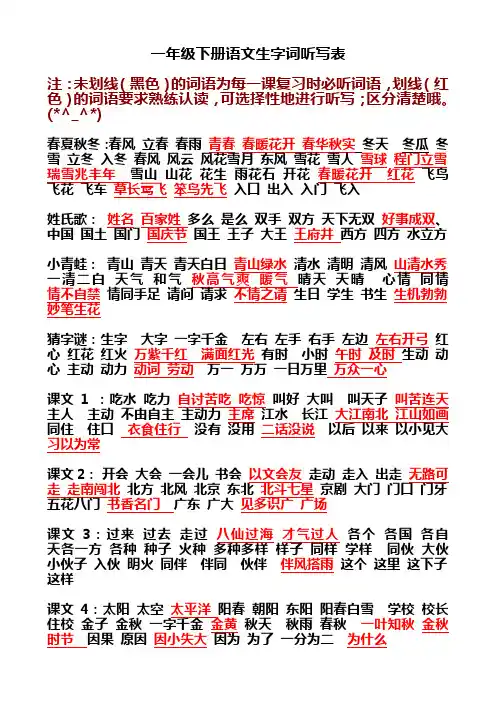 一年级下册语文生字词听写表
注：未划线(黑色)的词语为每一课复习时必听词语，划线(红
色)的词语要求熟练认读，可选择性地进行听写；区分清楚哦。
(*^_^*)
春夏秋冬：春风 立春 春雨 青春 春暖花开 春华秋实 冬天 冬瓜 冬
雪 立冬 入冬 春风 风云 风花雪月 东风 雪花 雪人 雪球 程门立雪
瑞雪兆丰年 雪山 山花 花生 雨花石 开花 春暖花开 红花 飞鸟
飞花 飞车 草长莺飞 笨鸟先飞 入口 出入 入门 飞入
姓氏歌： 姓名 百家姓 多么 是么 双手 双方 天下无双 好事成双、
中国 国土 国门 国庆节 国王 王子 大王 王府井 西方 四方 水立方
小青蛙： 青山 青天 青天白日 青山绿水 清水 清明 清风 山清水秀
一清二白 天气 和气 秋高气爽 暖气 晴天 天晴 心情 同情
情不自禁 情同手足 请问 请求 不情之请 生日 学生 书生 生机勃勃
妙笔生花
猜字谜：生字 大字 一字千金 左右 左手 右手 左边 左右开弓 红
心 红花 红火 万紫千红 满面红光 有时 小时 午时 及时 生动 动
心 主动 动力 动词 劳动 万一 万万 一日万里 万众一心
课文 1 ：吃水 吃力 自讨苦吃 吃惊 叫好 大叫 叫天子 叫苦连天
主人 主动 不由自主 主动力 主席 江水 长江 大江南北 江山如画
同住 住口 衣食住行 没有 没用 二话没说 以后 以来 以小见大
习以为常
课文 2： 开会 大会 一会儿 书会 以文会友 走动 走入 出走 无路可
走 走南闯北 北方 北风 北京 东北 北斗七星 京剧 大门 门口 门牙
五花八门 书香名门 广东 广大 见多识广 广场
课文 3：过来 过去 走过 八仙过海 才气过人 各个 各国 各自
天各一方 各种 种子 火种 多种多样 样子 同样 学样 同伙 大伙
小伙子 入伙 明火 同伴 伴同 伙伴 伴风搭雨 这个 这里 这下子
这样
课文 4：太阳 太空 太平洋 阳春 朝阳 东阳 阳春白雪 学校 校长
住校 金子 金秋 一字千金 金黄 秋天 秋雨 春秋 一叶知秋 金秋
时节 因果 原因 因小失大 因为 为了 一分为二 为什么